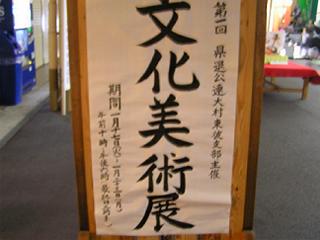 第一回 県退公連大村東彼支部主催
文化美術展
期間 一月十七日(火)~一月二十三日(月)
午前十時~午後六時